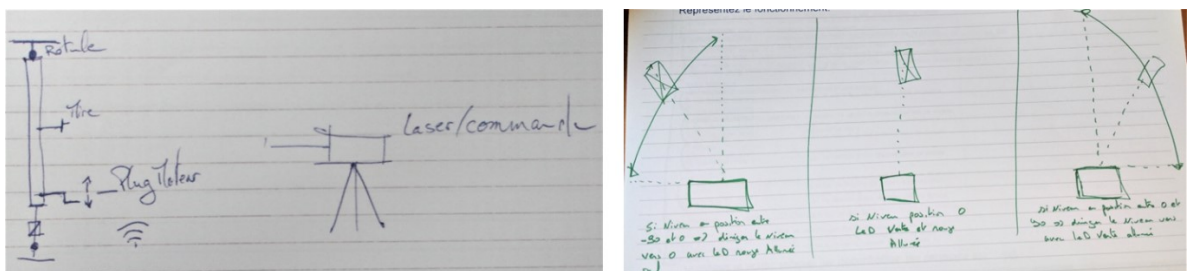 Rotule
Mire
Laser/commande
Plug Moteur
Représentez le fonctionnement.
Si Niveau en position entre
-90 et 0 => diriger le Niveau
vers 0 avec LED rouge Allumée
Si Niveau position 0
LED Verte et rouge
Allumée
Si Niveau en position entre 0 et
90 => diriger le Niveau vers
avec LED Verte allumé